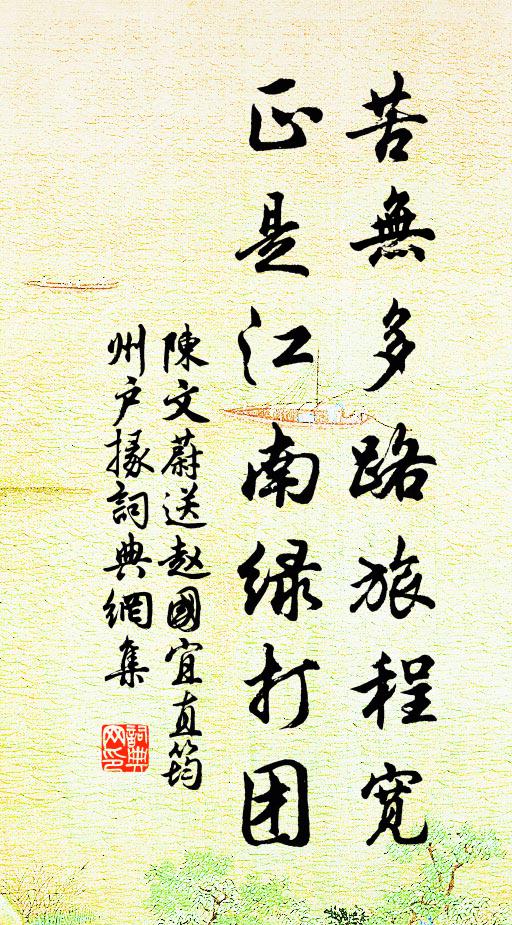 苦無多路旅程寬
正是江南绿打团
陳文蔚送赵國宜直筠
州户掾詞典網集
詞典
网印